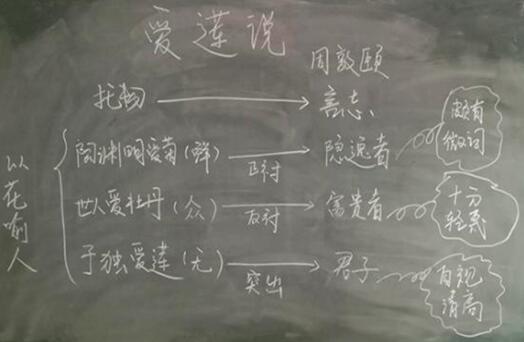 爱莲说
周敦颐
托物 言志
以花喻人
陶渊明爱菊(鲜) 正衬 隐逸者 颇有微词
世人爱牡丹(众) 反衬 富贵者 十分轻蔑
予独爱莲(无) 突出 君子 自视清高